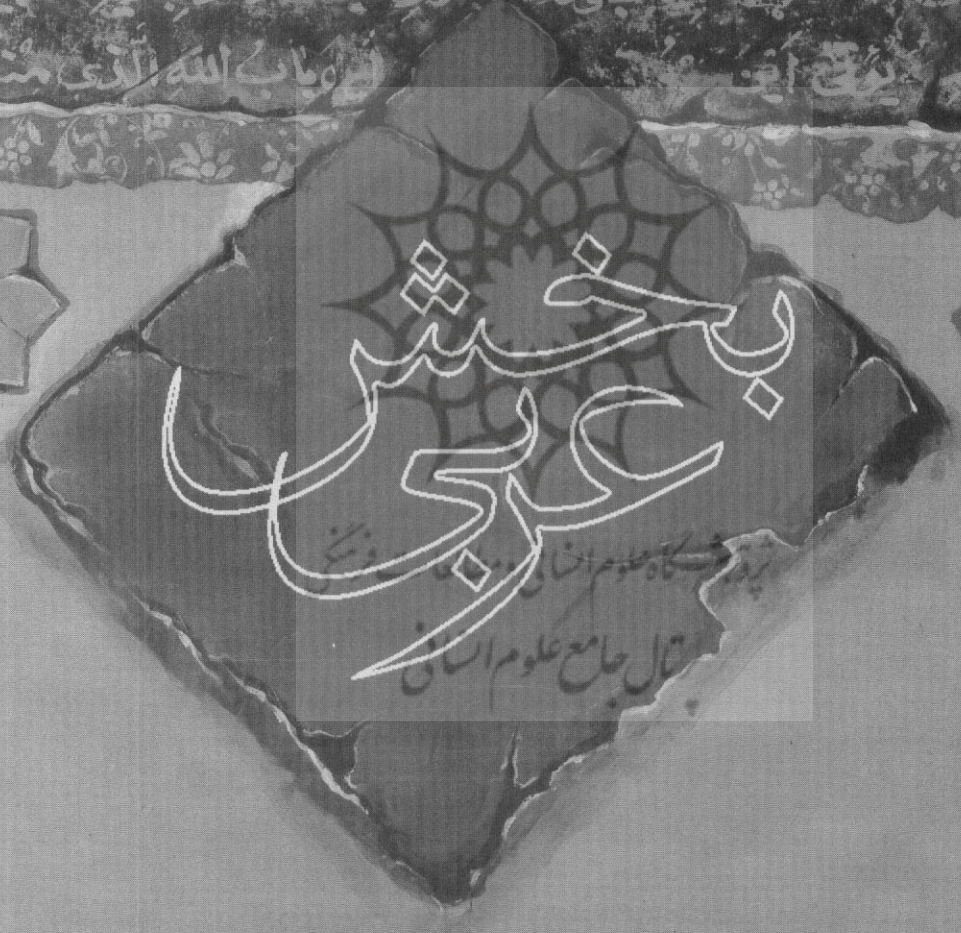 این باب الله الذی
بخش
عربی
پژوهشگاه علوم انسانی و مطالعات فرهنگی
پرتال جامع علوم انسانی